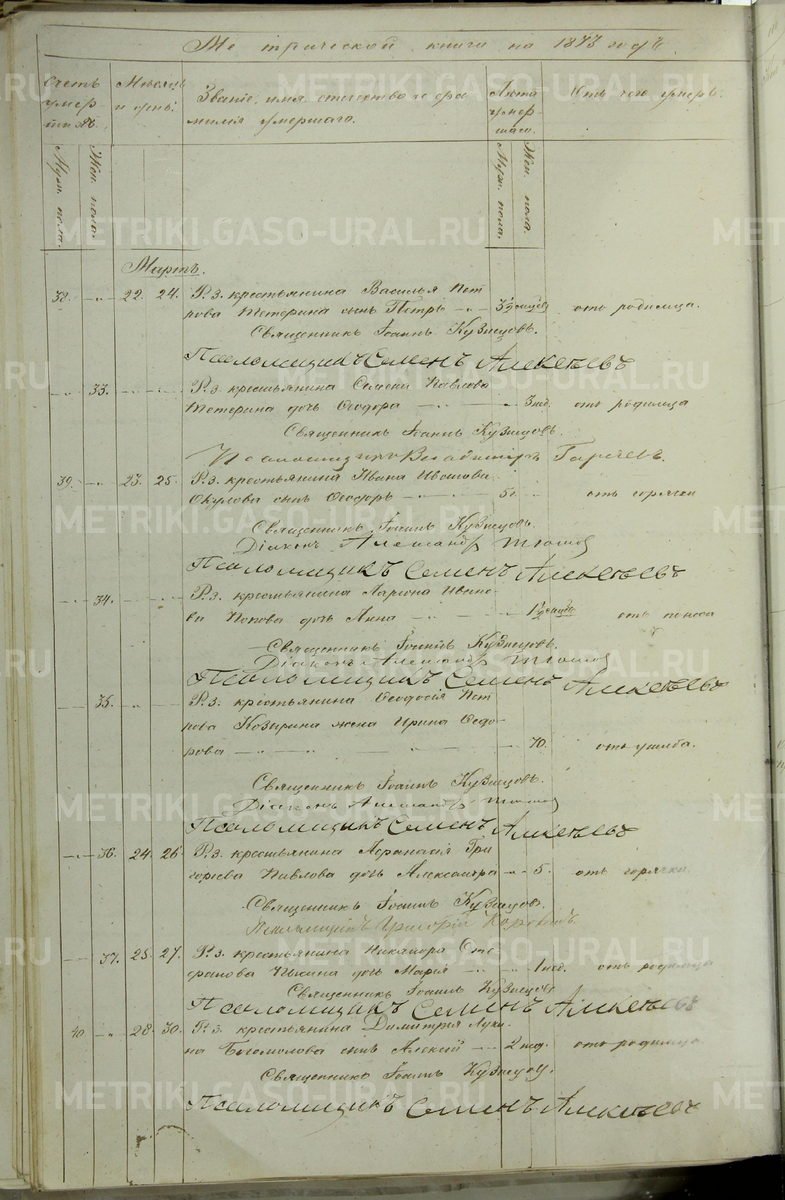 Метрической книги на 1877 годъ.
Счетъ умер-шихъ.
Мѣсяцъ и день.
Званіе, имя, отчество и фа-
милія умершаго.
Лѣта умер-шаго.
Отъ чего умеръ.
Муж. пола.
Жен. пола.
Муж. пола.
Жен. пола.
Мартъ.
38. 22. 24. Р. з. крестьянина Василья Пет
рова Тетерина сынъ Петръ отъ родимца.
Священникъ Іоаннъ Кузнецовъ.
Псаломщикъ Семенъ Алексѣевъ
33. Р. з. крестьянина Семена Павлова
Тетерина дочь Ѳеодора 3 нед. отъ родимца
Священникъ Іоаннъ Кузнецовъ.
Псаломщикъ Владиміръ
39. 23. 25. Р. з. крестьянина Ивана
Окулова сынъ Ѳеодоръ 5. отъ горячки
Священникъ Іоаннъ Кузнецовъ.
Діаконъ Александръ
Псаломщикъ Семенъ Алексѣевъ
34. Р. з. крестьянина Ларіона Ивано
ва Попова дочь Анна отъ поноса
Священникъ Іоаннъ Кузнецовъ.
Діаконъ Александръ
Псаломщикъ Семенъ Алексѣевъ
35. Р. з. крестьянина Ѳеодосія Пет
рова Козырина жена Ирина Ѳедо-
рова 70. отъ ушиба.
Священникъ Іоаннъ Кузнецовъ.
Діаконъ Александръ
Псаломщикъ Семенъ Алексѣевъ
36. 24. 26. Р. з. крестьянина Аѳанасія Гри
горьева Павлова дочь Александра 5. отъ горячки
Священникъ Іоаннъ Кузнецовъ.
Псаломщикъ Григорій
37. 25. 27. Р. з. крестьянина Никанора Сте
фанова дочь Марія 1 нед. отъ родимца
Священникъ Іоаннъ Кузнецовъ
Псаломщикъ Семенъ Алексѣевъ
40. 28. 30. Р. з. крестьянина Димитрія Луки-
на Богомолова сынъ Алексѣй 2 нед. отъ родимца
Священникъ Іоаннъ Кузнецовъ.
Псаломщикъ Семенъ Алексѣевъ
METRIKI.GASO-URAL.RU